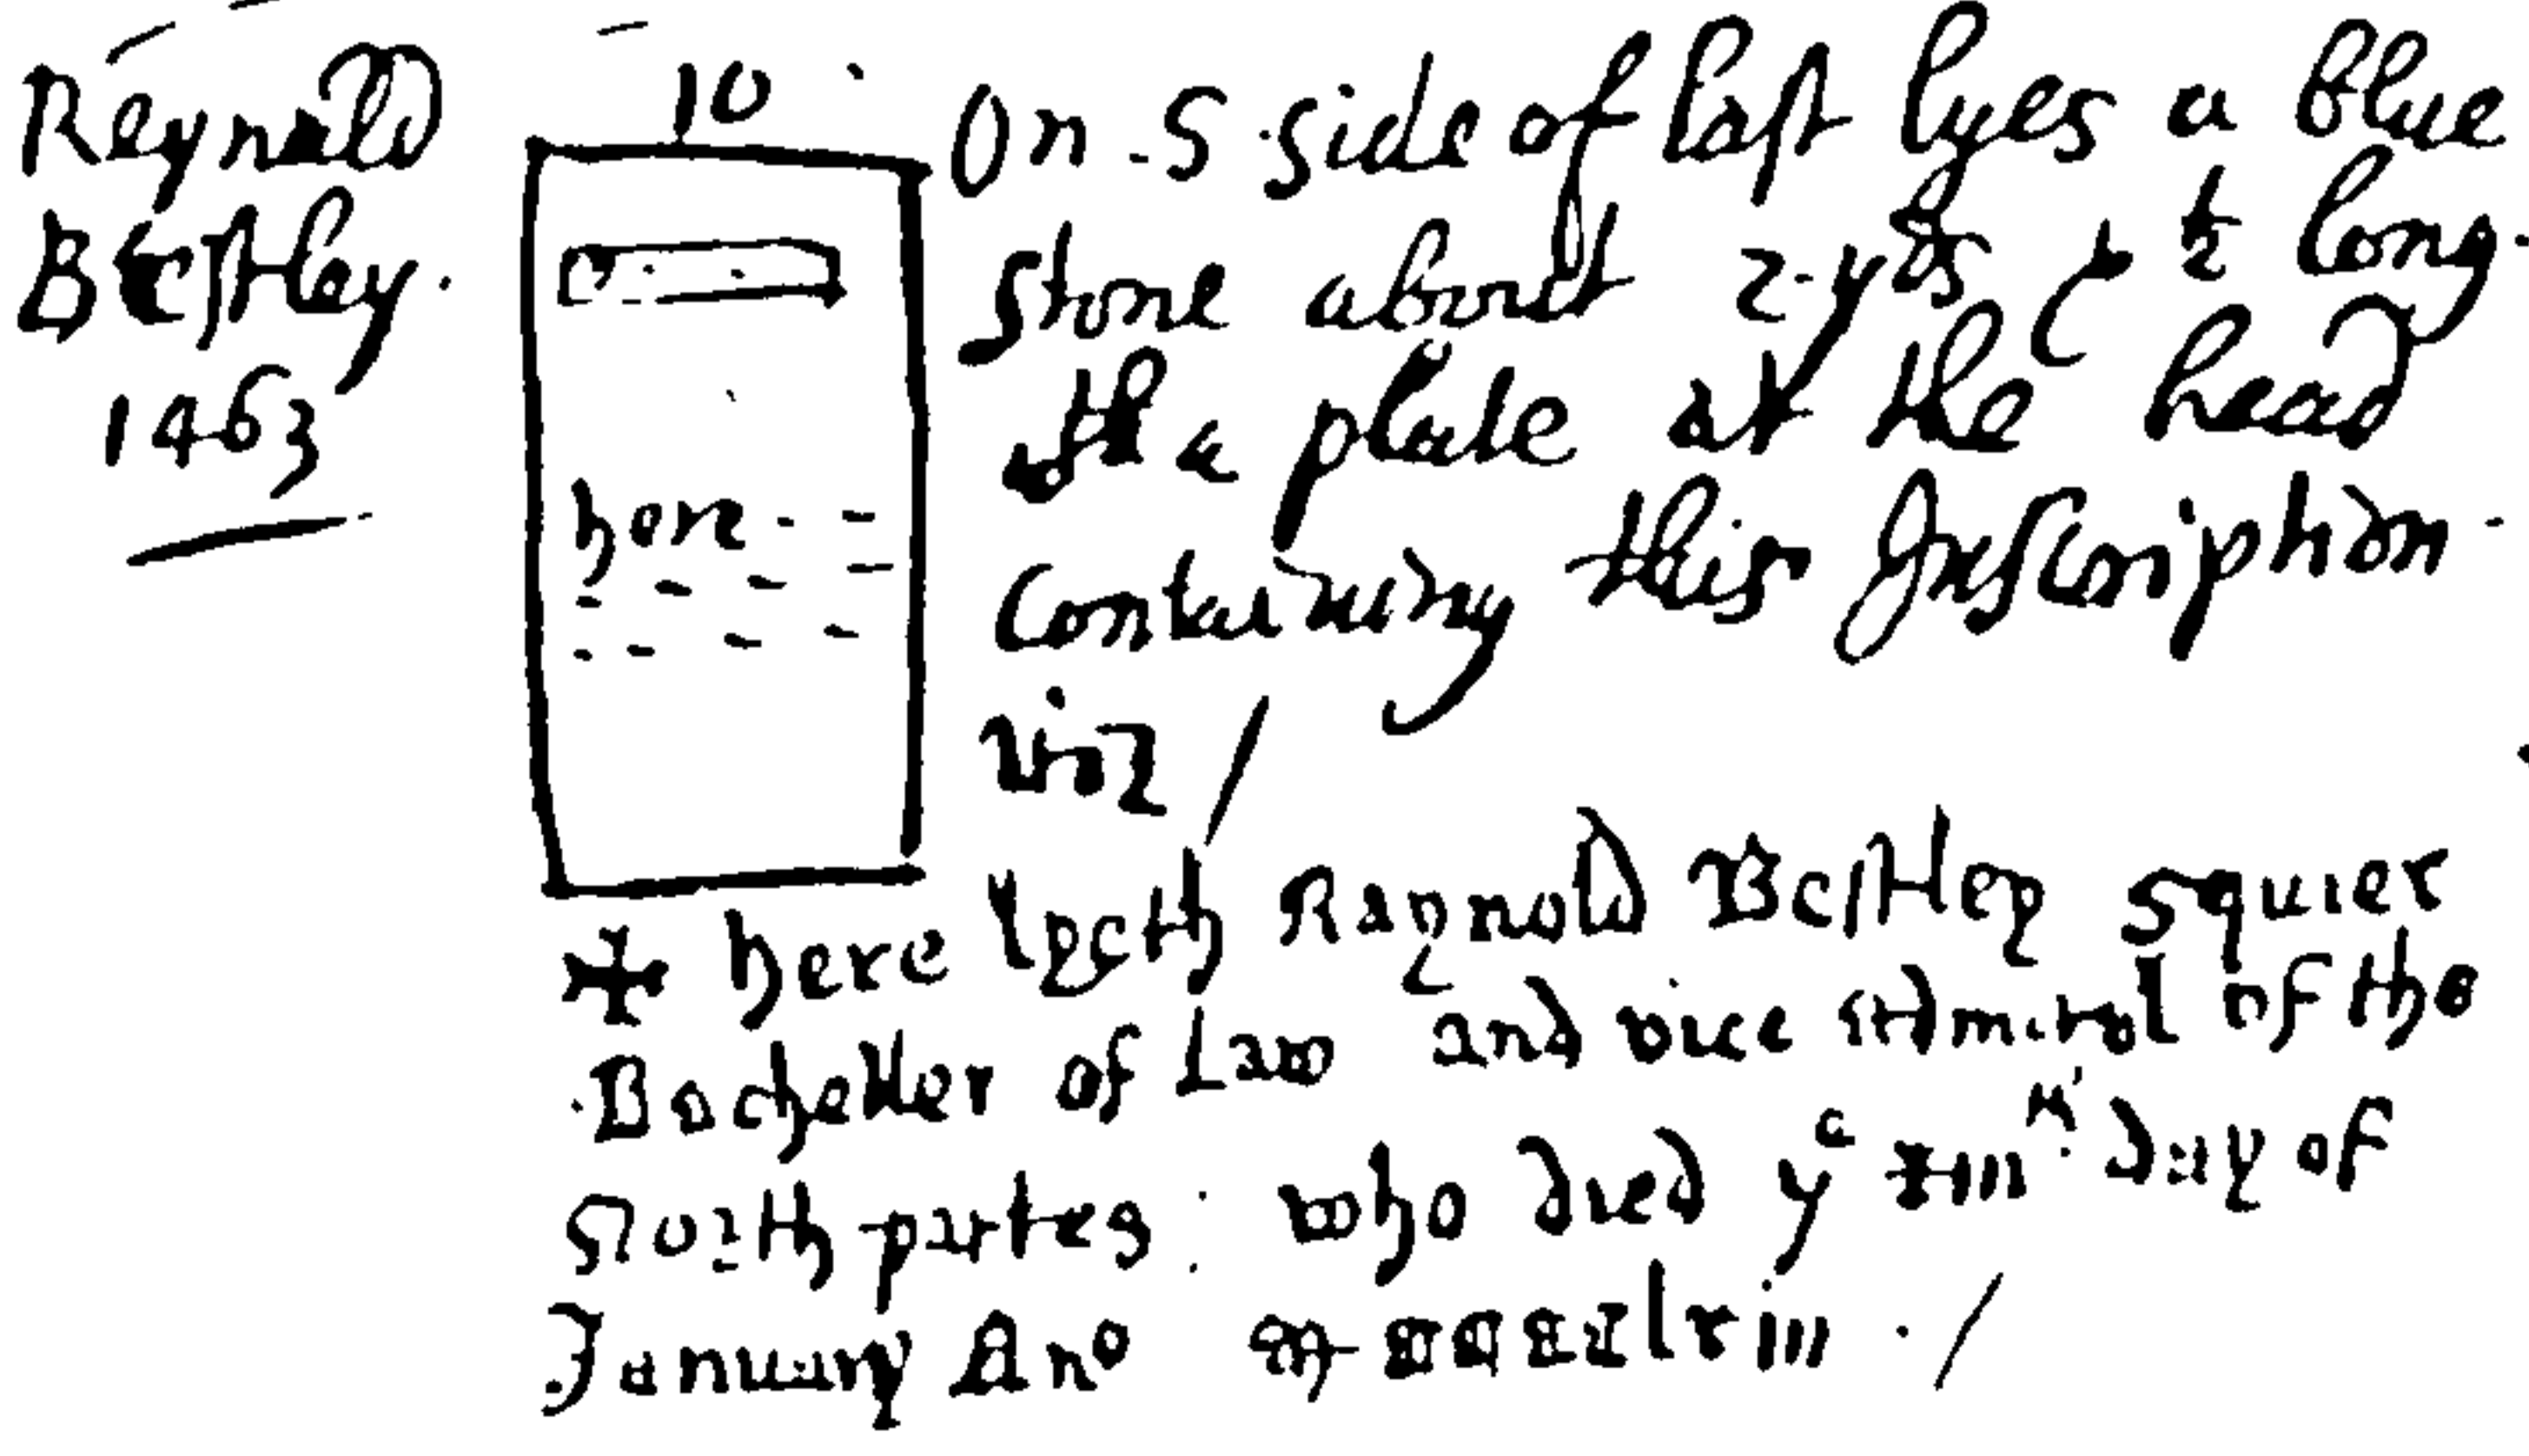 Reynald
Bestley.
1463
10
here - -
On S side of last lyes a blue
stone about 2 yds & ½ long.
wth a plate at the head
Containing this Inscription
viz /
✠ here lyeth Raynold Bestley squier
Bacheller of Law and vice Admirol of the
North partes : who died ye xiiith day of
January Ano M CCCC lxiii . /